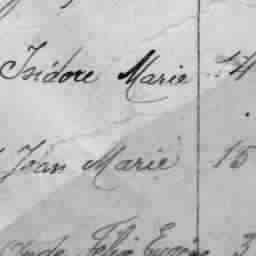 Isidore Marie 14
Jean Marie 15
Felix Eugène 3